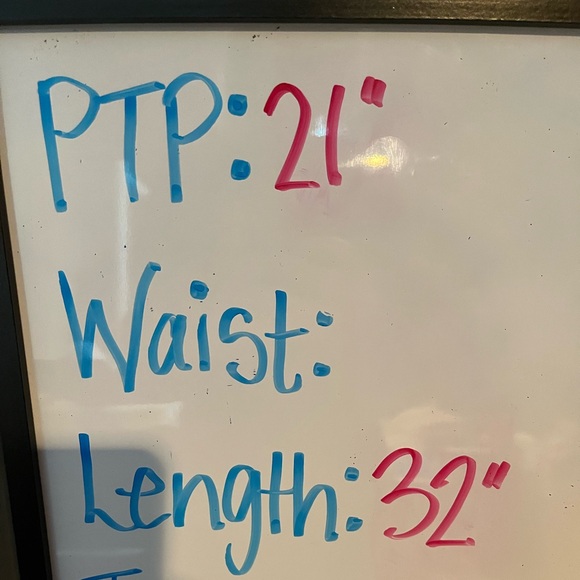 PTP: 21"
Waist:
Length: 32"